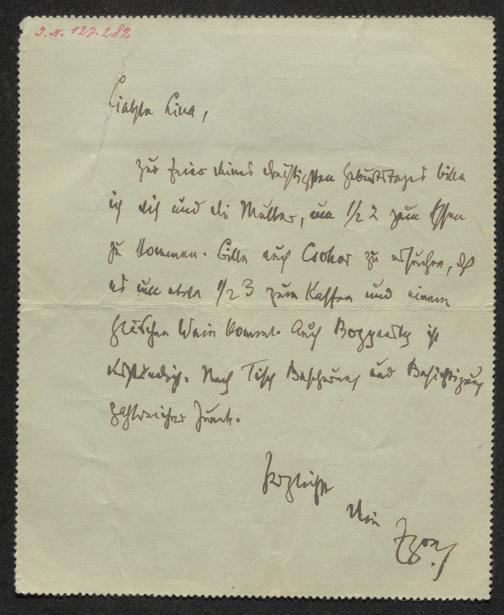 I.N. 127.282
Liebste Lina,
zur Feier deines dreißigsten Geburtstages bitte
ich dich und die Mutter, um 1/2 2 zum Essen
zu kommen. Bitte auch Csokor zu ersuchen, daß
er um etwa 1/2 3 zum Kaffee und einem
Gläschen Wein kommt. Auch ist
verständigt. Nach Tisch Bescherung und Besichtigung
zahlreicher
Herzlichst
Dein
Egon